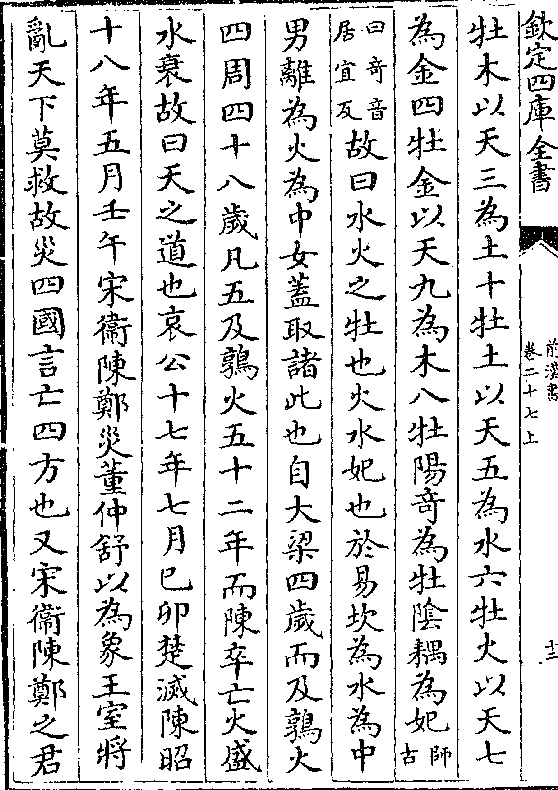 欽定四庫全書
前漢書
卷二十七上
十三
牡木以天三為土十牡土以天五為水六牡火以天七
為金四牡金以天九為木八牡陽奇為牡陰耦為妃師古
曰奇音居宜反故曰水火之牡也火水妃也於易坎為水為中
男離為火為中女蓋取諸此也自大梁四歲而及鶉火
四周四十八歲凡五及鶉火五十二年而陳卒亡火盛
水衰故曰天之道也哀公十七年七月己卯楚滅陳昭
十八年五月壬午宋衞陳鄭災董仲舒以為象王室將
亂天下莫救故災四國言亡四方也又宋衞陳鄭之君